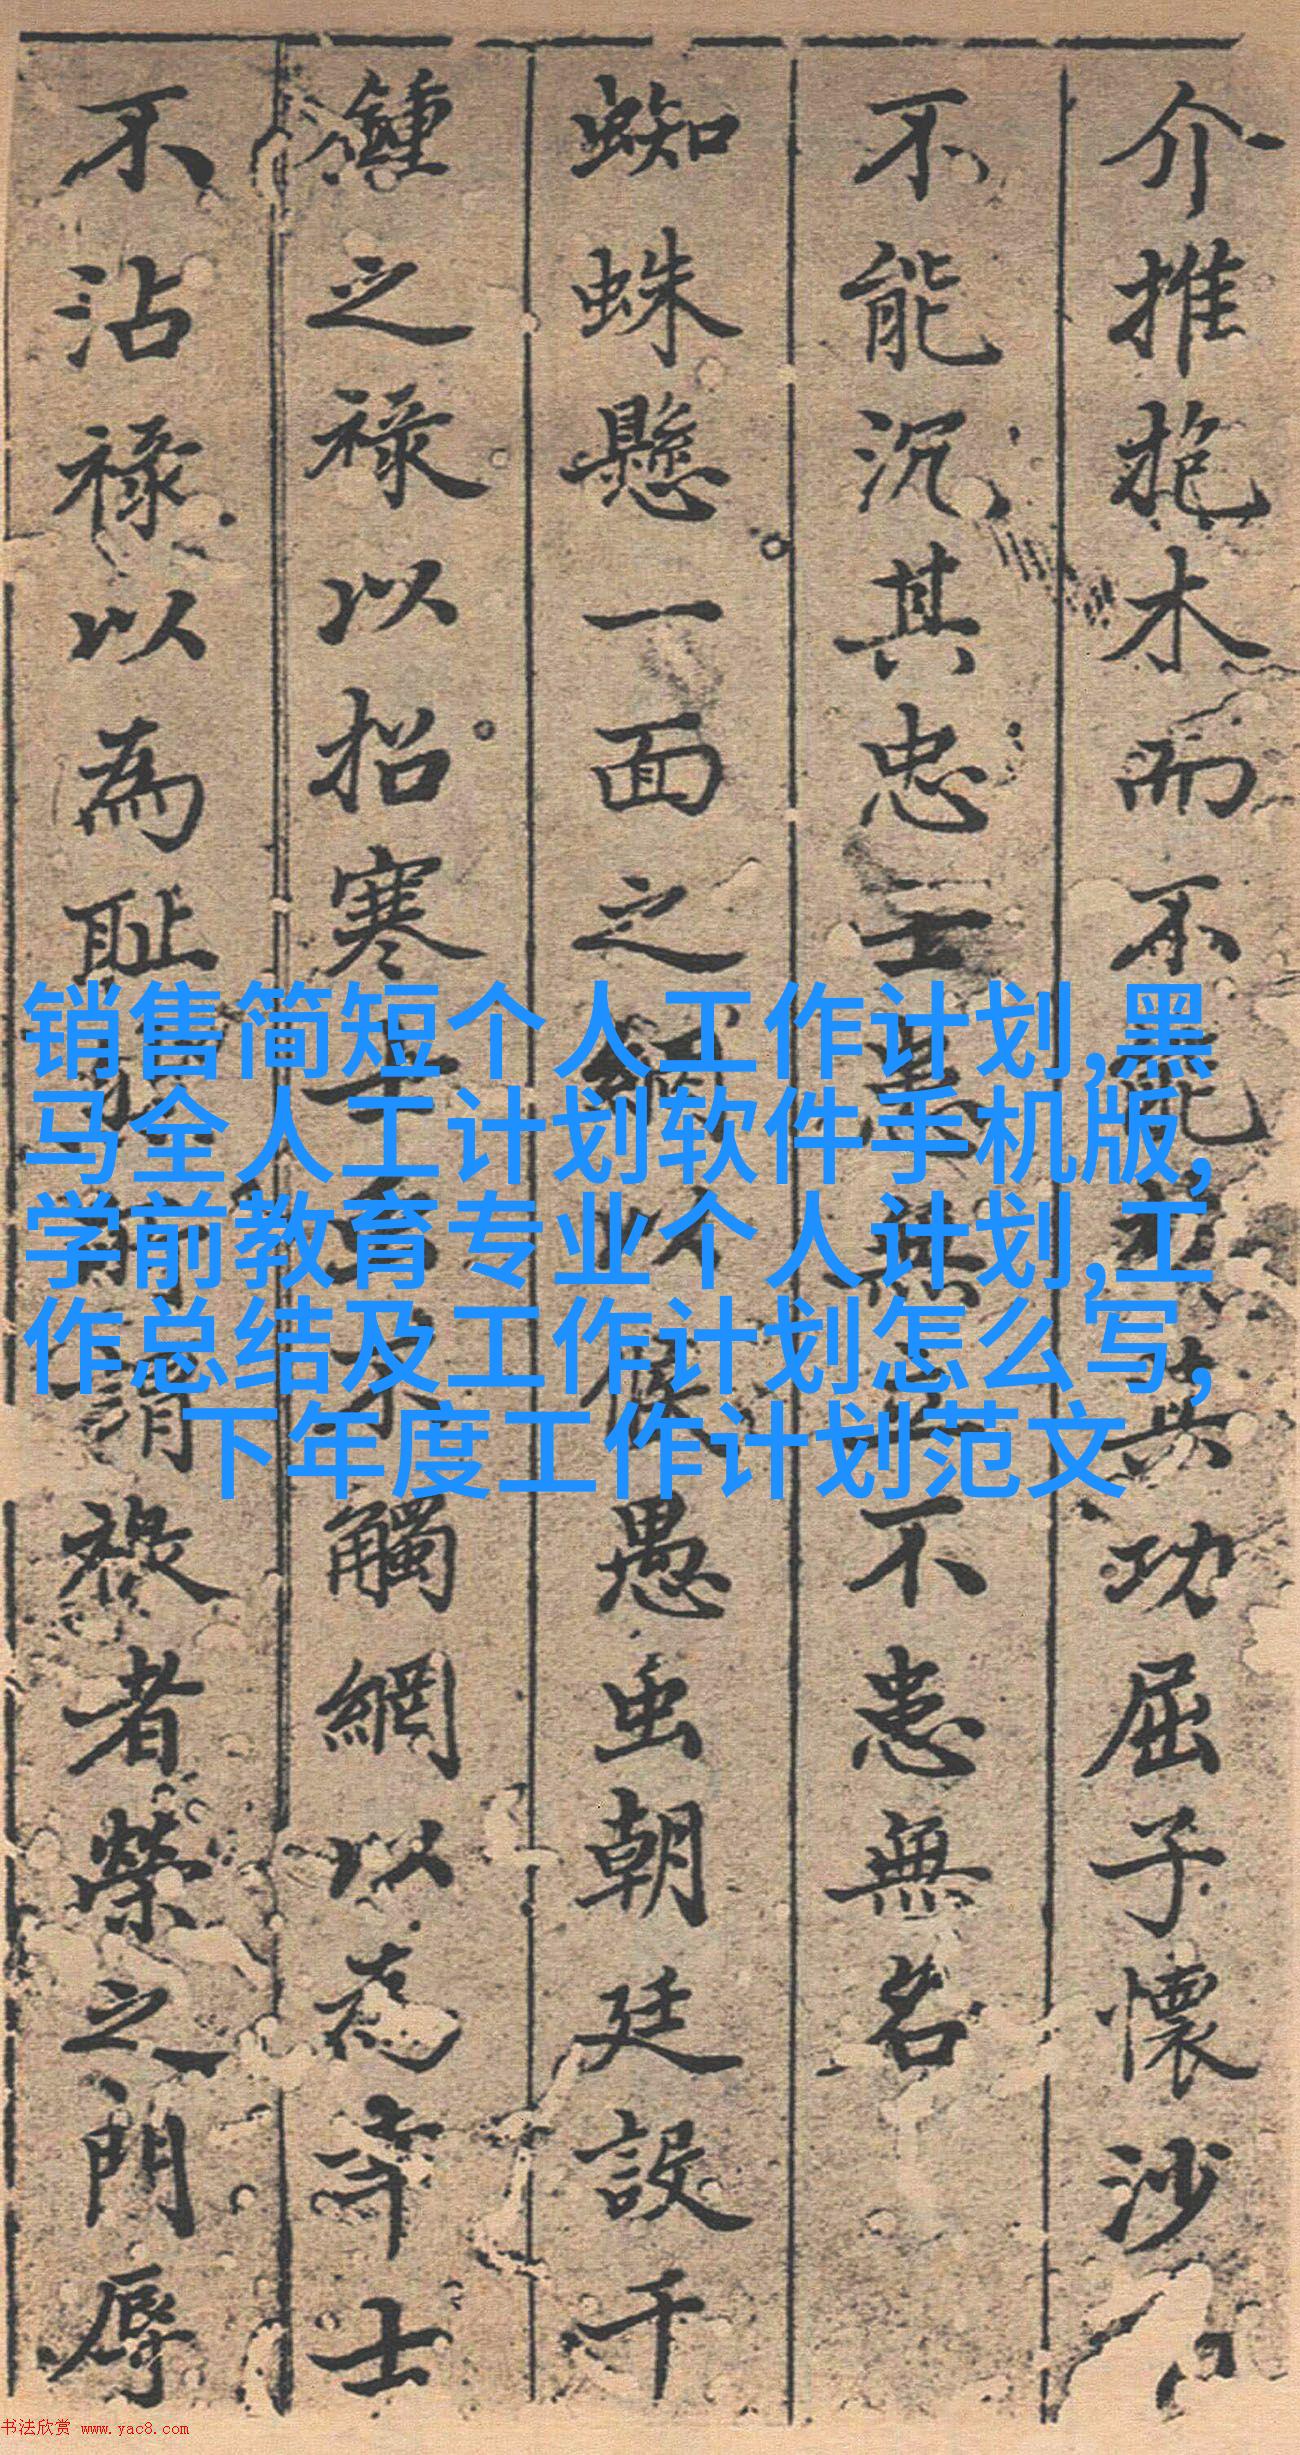 介推抱木而不能其功屈子懷沙
不能沉其忠士患無不患無名
蜘蛛懸一面之網以候愚虫朝廷設千
鍾之祿以招寒士虫不觸網以為幸士
不沾祿以為耻所謂祿者榮之門辱
销售简短个人工作计划,黑
马全人工计划软件手机版,
学前教育专业个人计划,工
作总结及工作计划怎么写,
下年度工作计划范文
书法欣赏 www.yac8.com